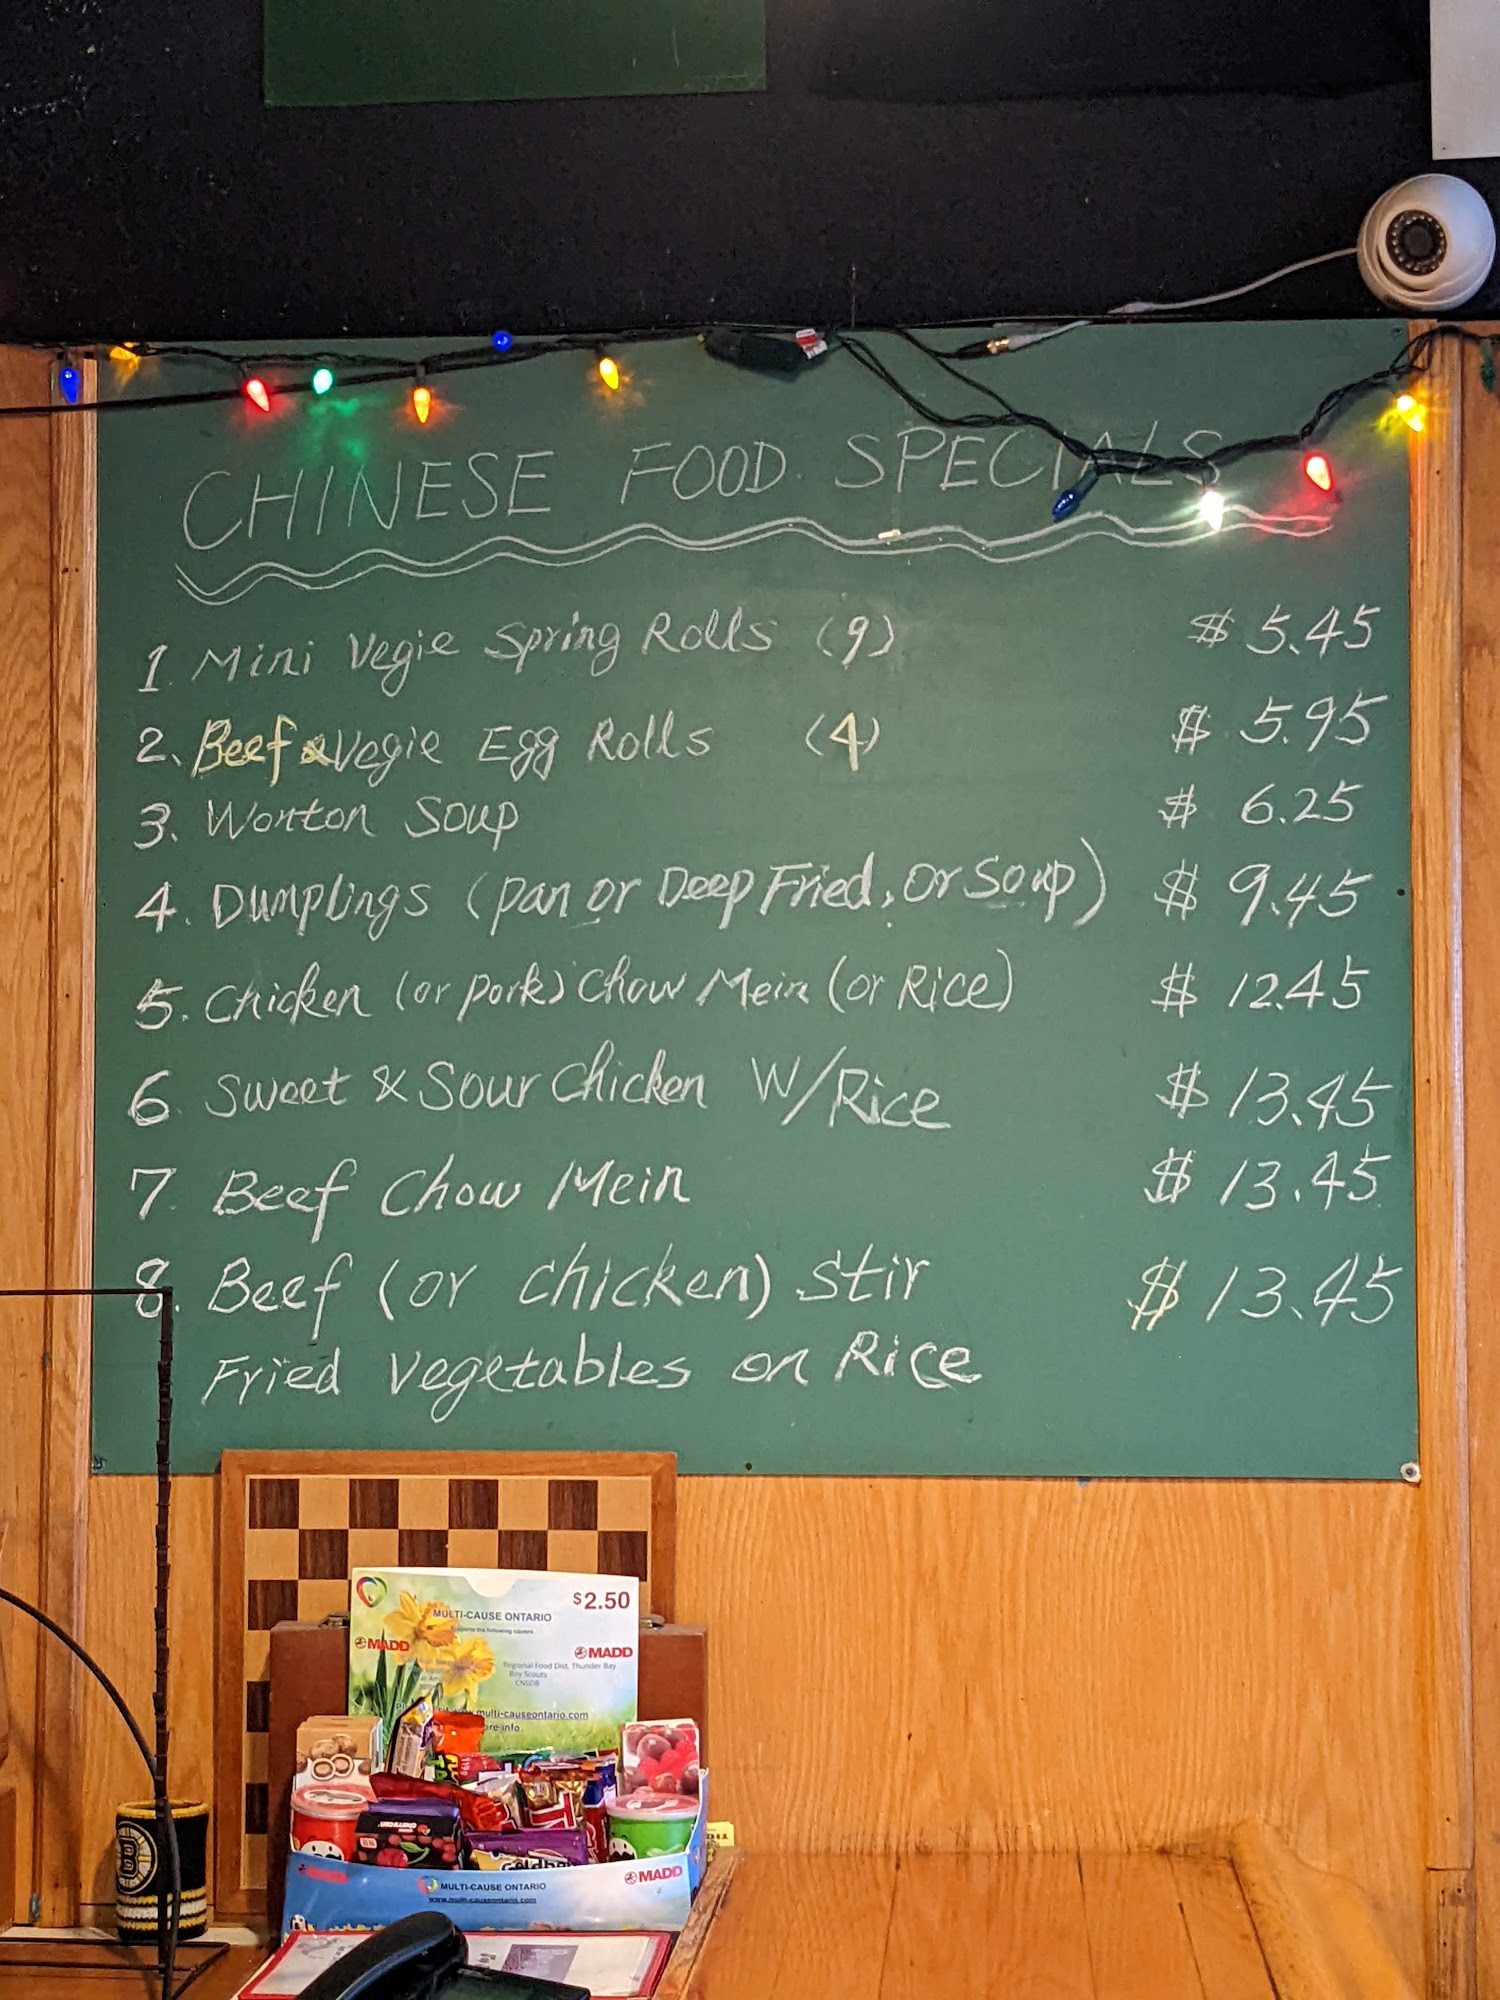 CHINESE FOOD SPECIALS
1. Mini Vegie Spring Rolls (9) $ 5.45
2. Beef & Vegie Egg Rolls (4) $ 5.95
3. Wonton Soup $ 6.25
4. Dumplings (pan or Deep Fried, or Soup) $ 9.45
5. Chicken (or pork) Chow Mein (or Rice) $ 12.45
6 Sweet & Sour Chicken W/Rice $ 13.45
7. Beef Chow Mein $ 13.45
8. Beef (or chicken) Stir $ 13.45
Fried Vegetables on Rice
$2.50
MULTI-CAUSE ONTARIO
supports the following causes
MADD MADD
Regional Food Dist, Thunder Bay
Boy Scouts
CNSDB
multi-causeontario.com
MADD
MULTI-CAUSE ONTARIO
www.multi-causeontario.com